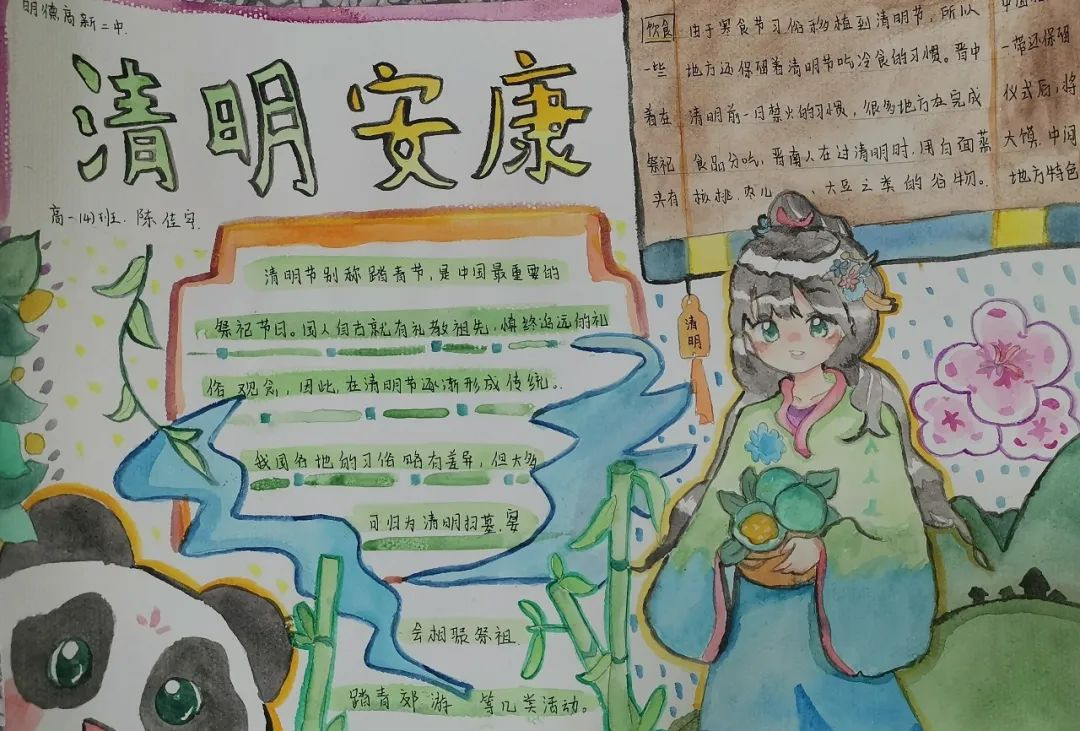 明德高新二中.
清明安康
高一(4)班. 陈佳宇.
清明节别称踏青节,是中国最重要的
祭祀节日。国人自古就有礼敬祖先,慎终追远的礼
俗观念,因此,在清明节逐渐形成传统。
我国各地的习俗略有差异,但大多
可归为清明扫墓.宴
会相聚祭祖.
踏青郊游 等几类活动。
饮食 由于寒食节习俗移植到清明节,所以
一些 地方还保留着清明节吃冷食的习惯。晋中 一带还保留
着在 清明前一日禁火的习惯,很多地方在完成 仪式后,将
祭祀 食品分吃,晋南人在过清明时,用白面蒸 大馍.中间
夹有 核桃.枣儿、大豆之类的谷物。 地方特色
清明